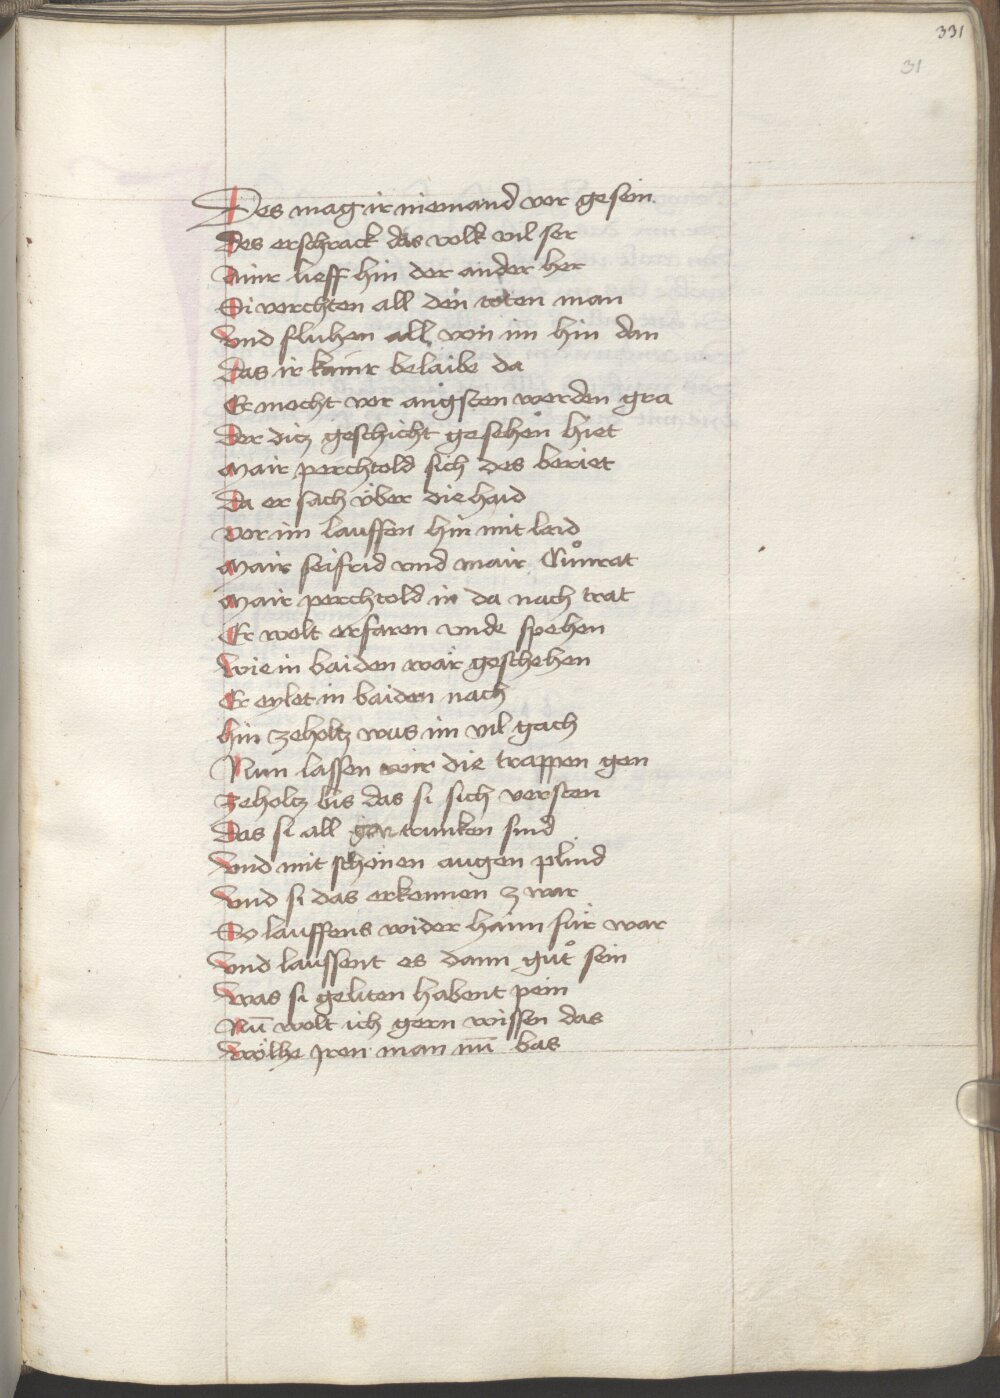 331
31
Des mag ir niemand vor gesein
Des erschrack das volk vil ser
Ainr lieff hin der ander her
Si vorchten all den toten man
Vnd fluhen all von im hin dan
Das ir kainr belaibe da
Er mocht vor angsten werden gra
Der ditz geschicht gesehen hiet
Mair perchtold sich des beriet
Da er sach über die haid
Vor im lauffen hin mit laid
Mair seifrid vnd mair Cuͦnrat
Mair perchtold in da nach trat
Er wolt erfaren vnde spehen
Wie in baiden wär geschehen
Er eylet in baiden nach
Hin ze holtz was im vil gach
Nun lassen wir die trappen gen
Ze holtz bis das si sich versten
Das si all gar trunken sind
Vnd mit schönen augen plind
Vnd si das erkennen zwar
So lauffens wider haim für war
Vnd laussent es dann guͦt sein
Was si geliten habent pein
Nu᷑ wolt ich gern wissen das
Wölhe jren man nu᷑ bas